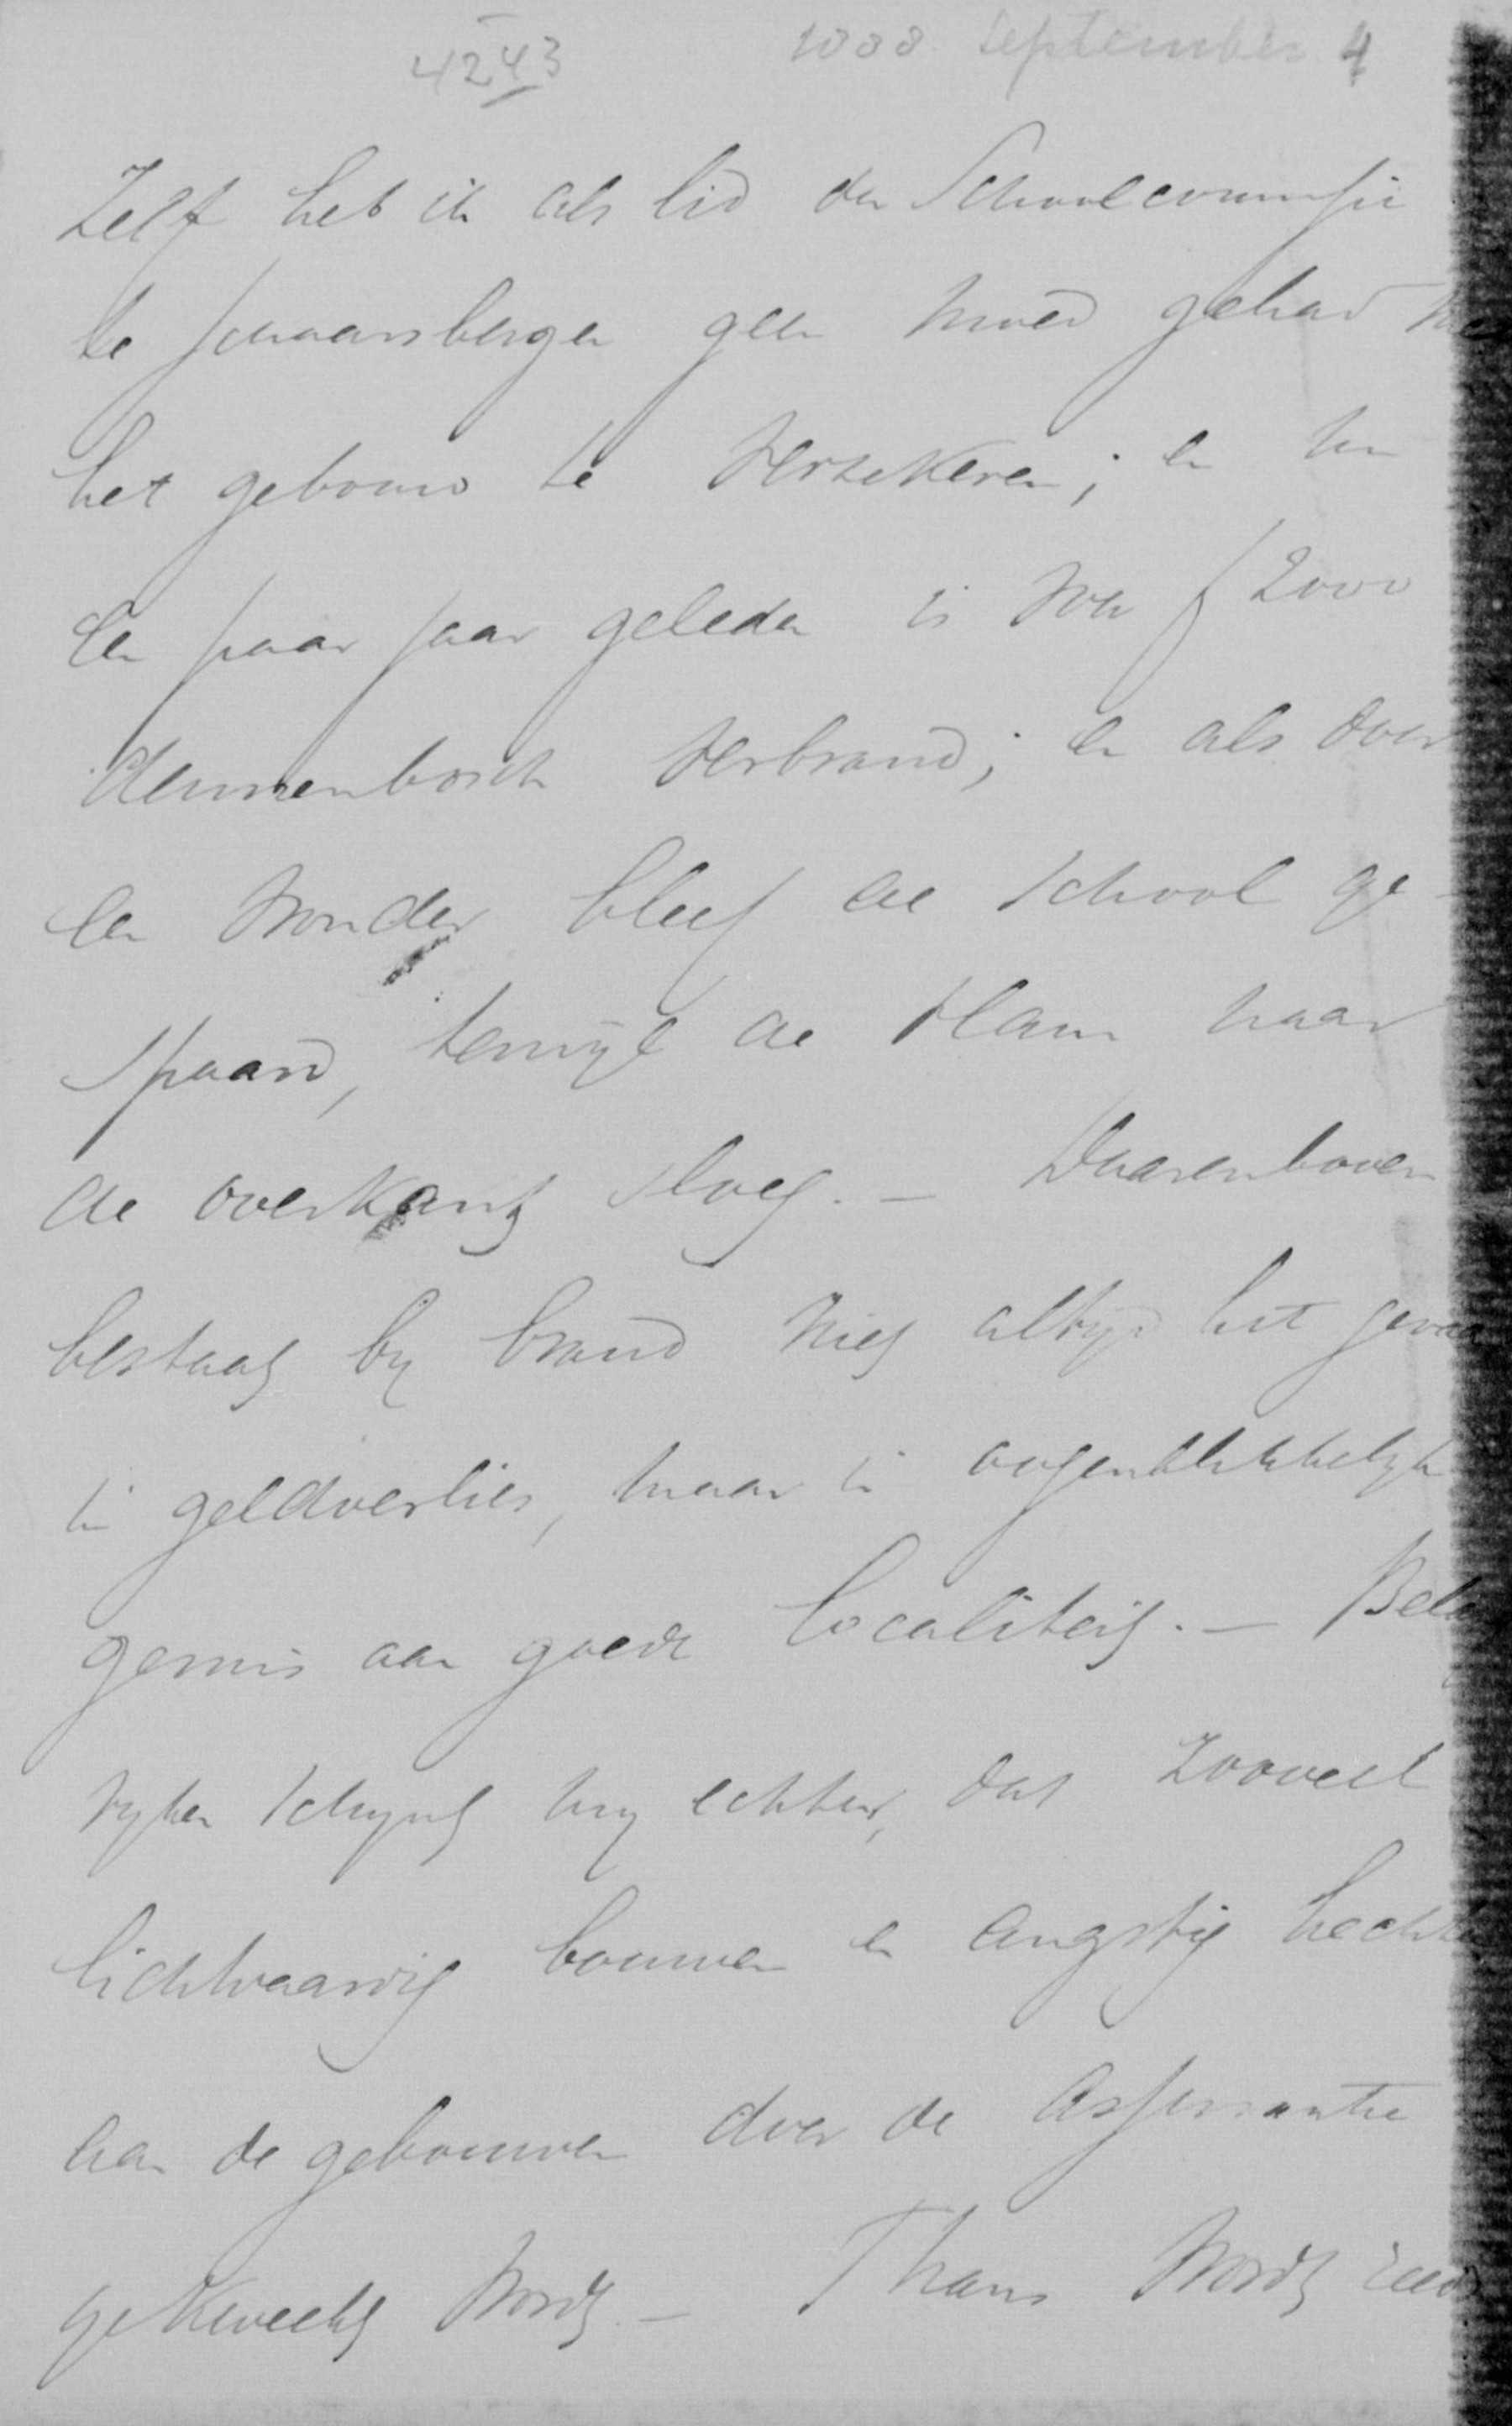 4243 1888 September 4
Zelf heb ik als lid der Schoolcommissie
te Schaarsbergen geen moed gehad
het gebouw te verzekeren; en nu
een paar jaar geleden is voor f 2000
dennenbosch verbrand; en als door
een wonder bleef de school ge-
spaard, terwijl de vlam naar
de overkant sloeg. - Daarenboven
bestaat by brand niet altijd het gevaar
in geldverlies, maar in oogenblikkelijk
gemis aan goede localiteit. - Belang
ryker schynt my echter, dat zooveel
lichtvaardig bouwen en angstig hechten
aan de gebouwen door de assurantie
gekweekt wordt. - Thans wordt